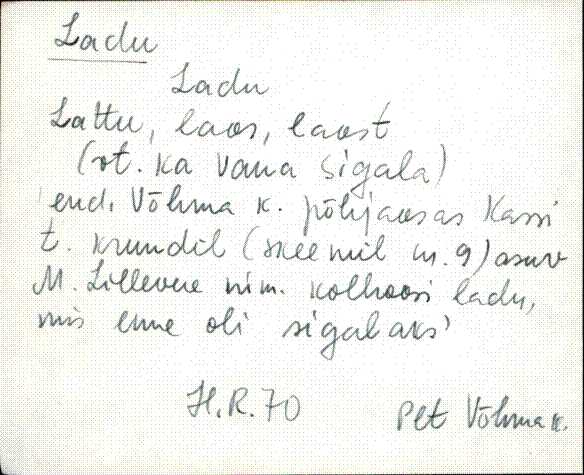 Ladu
Ladu
Lattu, laos, laost
(vt. ka Vana sigala)
end. Võhma k. põhjaosas Kassi
t. krundil (skeemil m. 9) asuv
M. Lillevere nim. kolhoosi ladu,
mis enne oli sigalaks'
H.R. 70
Plt Võhma k.